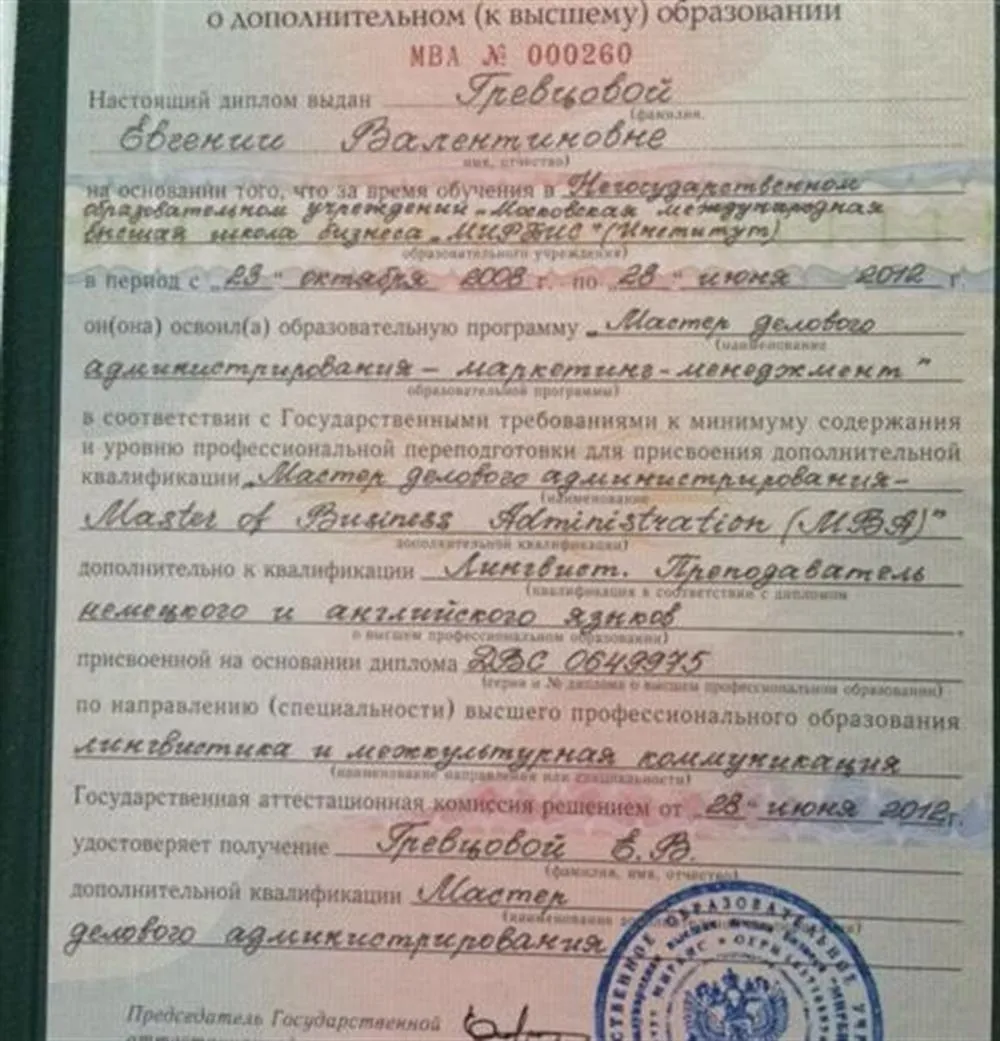 о дополнительном (к высшему) образовании
МВА № 000260
Настоящий диплом выдан Гревцовой
(фамилия,
Евгении Валентиновне
имя, отчество)
на основании того, что за время обучения в Негосударственном
образовательном учреждений „Московская международная
высшая школа бизнеса „МИРБИС" (Институт)
образовательного учреждения)
в период с „23" октября 2008 г. по „28" июня 2012 г.
он(она) освоил(а) образовательную программу „Мастер делового
(наименование
администрирования – маркетинг-менеджмент"
образовательной программы)
в соответствии с Государственными требованиями к минимуму содержания
и уровню профессиональной переподготовки для присвоения дополнительной
квалификации „Мастер делового администрирования–
(наименование
Master of Business Administration (MBA)"
дополнительной квалификации)
дополнительно к квалификации Лингвист. Преподаватель
(квалификация в соответствии с дипломом
немецкого и английского языков
о высшем профессиональном образовании)
присвоенной на основании диплома ДВС 0649975
(серия и № диплома о высшем профессиональном образовании)
по направлению (специальности) высшего профессионального образования
лингвистика и межкультурная коммуникация
(наименование направления или специальности)
Государственная аттестационная комиссия решением от „28" июня 2012 г.
удостоверяет получение Гревцовой Е.В.
(фамилия, имя, отчество)
дополнительной квалификации Мастер
(наименование
делового администрирования
Председатель Государственной